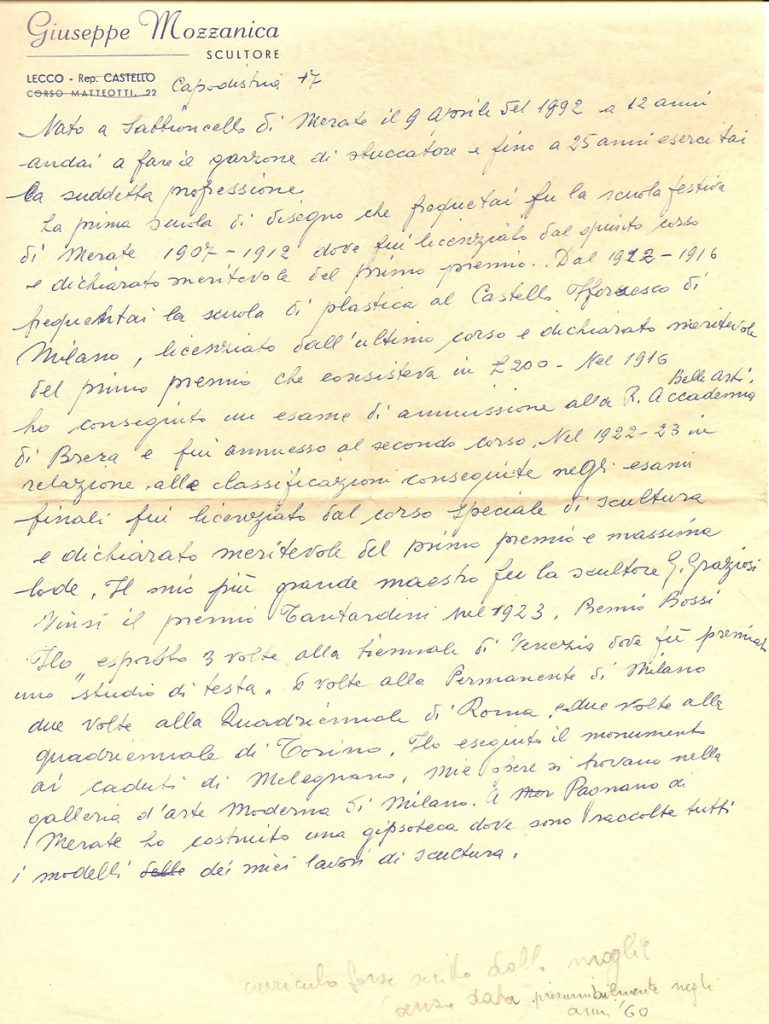 Giuseppe Mozzanica
SCULTORE
LECCO - Rep. CASTELLO
CORSO MATTEOTTI, 22 Capodistria 17
Nato a Sabbioncello di Merate il 9 Aprile del 1892 a 12 anni
andai a fare il garzone di stuccatore e fino a 25 anni esercitai
la suddetta professione.
La prima scuola di disegno che frequetai fu la scuola festiva
di Merate 1907-1912 dove fui licenziato dal quinto corso
e dichiarato meritevole del primo premio. Dal 1912-1916
frequentai la scuola di plastica al Castello Sforzesco di
Milano, licenziato dall'ultimo corso e dichiarato meritevole
del primo premio che consisteva in £200- Nel 1916
ho conseguito un esame di ammissione alla R. Accademia Belle Arti.
di Brera e fui ammesso al secondo corso. Nel 1922-23 in
relazione alle classificazioni conseguite negli esami
finali fui licenziato dal corso speciale di scultura
e dichiarato meritevole del primo premio e massima
lode. Il mio più grande maestro fu lo scultore G. Graziosi
Vinsi il premio Tantardini nel 1923. Premio Bossi
Ho esposto 3 volte alla biennale di Venezia dove fu premiato
uno "studio di testa. 6 volte alla Permanente di Milano
due volte alla Quadriennale di Roma, e due volte alla
quadriennale di Torino. Ho eseguito il monumento
ai caduti di Melegnano, mie opere si trovano nella
galleria d'arte Moderna di Milano. A Mer Pagnano di
Merate ho costruito una gipsoteca dove sono raccolte tutti
i modelli delle dei miei lavori di scultura.
curriculo forse scritto dalla moglie
(senza data presumibilmente negli
anni '60